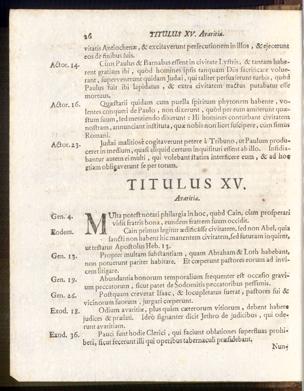 26 TITULUS XV. Avaritia.
vitatis Antiochenæ, & excitaverunt persecutionem in illos, & ejecerunt
eos de finibus suis.
Actor. 14. Cum Paulus & Barnabas essent in civitate Lystris, & tantam habe-
rent gratiam ibi, quod homines ipsis tanquam Diis sacrificare volue-
rant, supervenerunt quidam Judæi, qui taliter persuaserunt turbis, quod
Paulus fuit ibi lapidatus, & extra civitatem tractus putabatur esse
mortuus.
Actor. 16. Quæstarii quidam cum puella spiritum phytonem habente, vo-
lentes conqueri de Paulo, non dixerunt, quod per eum amiserunt quæ-
stum suum, sed mentiendo dixerunt: Hi homines conturbant civitatem
nostram, annunciant instituta, quæ nobis non licet suscipere, cum simus
Romani.
Actor. 23. Judæi malitiose cogitaverunt petere à Tribuno, ut Paulum produ-
ceret in medium, quasi aliquid certum inquisituri essent ab illo. Insidia-
bantur autem ei multi, qui volebant statim interficere eum, & ad hoc
etiam obligaverunt se per totum.
TITULUS XV.
Avaritia.
Gen. 4. MUlta potest notari philargia in hoc, quod Cain, cum prosperari
vidit fratris bona, eundem fratrem suum occidit.
Eodem. Cain primus legitur ædificasse civitatem, sed non Abel, quia
sancti non habent hic manentem civitatem, sed futuram inquirunt,
ut testatur Apostolus Heb. 13.
Gen. 13. Propter multam substantiam, quam Abraham & Loth habebant,
non poterunt pariter habitare. Et cœperunt pastores eorum ad invi-
cem litigare.
Gen. 19. Abundantia bonorum temporalium frequenter est occasio gravi-
um peccatorum, sicut patet de Sodomitis peccatoribus pessimis.
Gen. 26. Postquam creverat Isaac, & locupletatus fuerat, pastores sui &
vicinorum suorum, jurgari cœperunt.
Exod. 18. Odium avaritiæ, plus quam cæterorum vitiorum, debent habere
judices & prælati. Ideo signanter dicit Jethro de judicibus, qui ode-
runt avaritiam.
Exod. 36. Pauci sunt hodie Clerici, qui faciunt oblationes superfluas prohi-
beri, sicut fecerunt illi qui operibus tabernaculi præsidebant.
Nun-